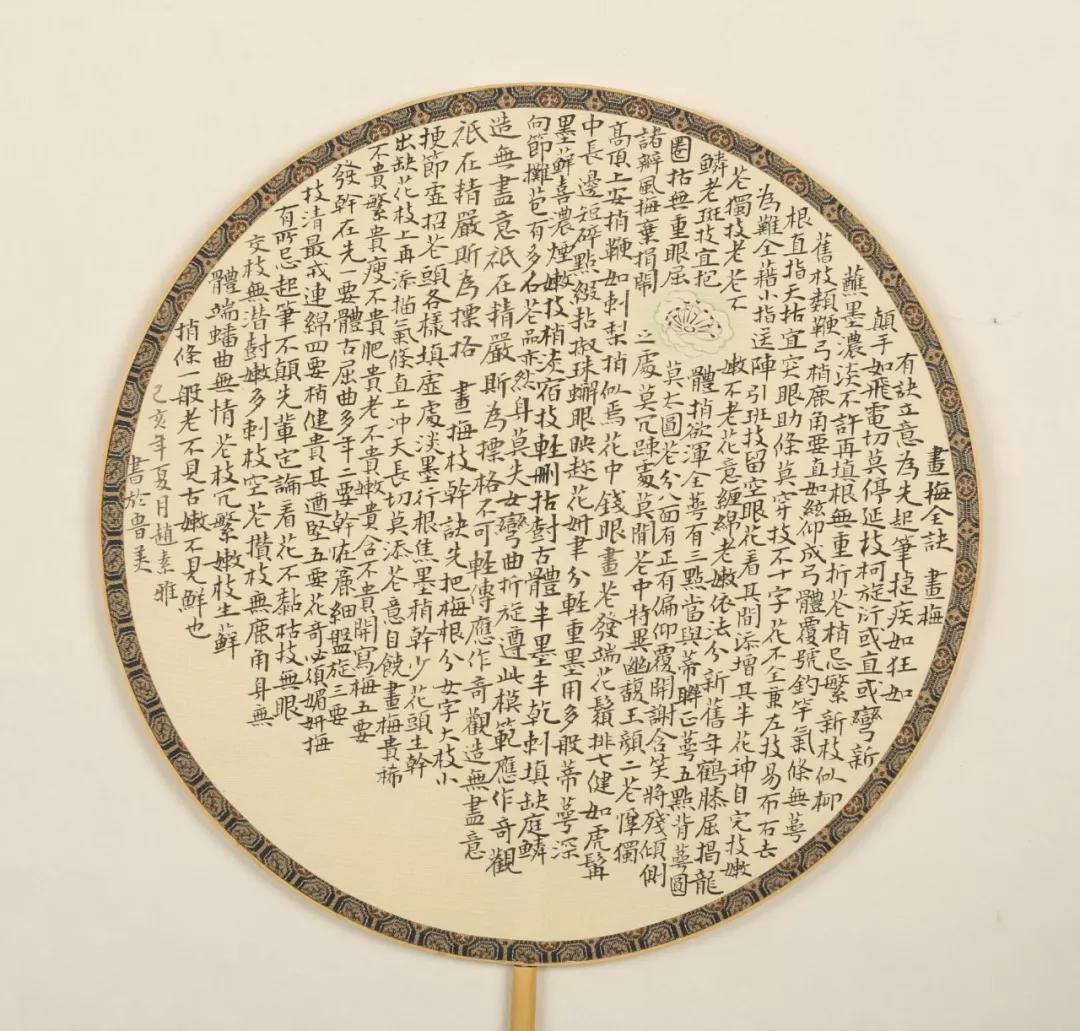 畫梅全訣 畫梅
有訣立意為先起筆捷疾如狂如
顛手如飛電切莫停延枝柯旋衍或直或彎新
蘸墨濃淡不許再填根無重折花梢忌繁新枝似柳
舊枝類鞭弓梢鹿角要直如絃仰成弓體覆號釣竿氣條無萼
根直指天枯宜突眼助條莫穿枝不十字花不全兼左枝易布右去
為難全藉小指送陣引班枝留空眼花看其間添增其半花神自完枝嫩
花獨枝老花不嫩不老花意纏綿老嫩依法分新舊年鶴膝屈揭龍
鱗老斑枝宜把體梢欲渾全萼有三點當與蒂聯正萼五點背萼圓
圈枯無重眼屈莫太圓花分八面有正有偏仰覆開謝含笑將殘傾側
諸瓣風梅棄捐鬧之處莫冗疎處莫閒花中特異幽馥玉顏二花憚獨
高頂上安梢鞭如刺梨梢似焉花中錢眼畫花發端花鬚排七健如虎髯
中長邊短碎點綴拈椒珠蠏眼映趂花妍聿分輊重墨用多般蒂萼深
墨蘚喜濃煙嫩枝梢淡宿枝輊删枯對古體半墨半乾刺填缺庭鱗
向節攤苞有多名花品亦然身莫失女彎曲折旋遵此模範應作奇觀
造無盡意祇在精嚴斯為標格不可輊傳應作奇觀造無盡意
祇在精嚴斯為摽格 畫梅枝幹訣先把梅根分女字大枝小
梗節虛招花頭各樣填虛處淡墨行根焦墨梢幹少花頭生幹
出缺花枝上再添描氣條直上冲天長切莫添花意自饒畫梅貴稀
不貴繁貴瘦不貴肥貴老不貴嫩貴含不貴開寫梅五要
發幹在先一要體古屈曲多年二要幹恠麄細盤旋三要
枝清最戒連綿四要梢健貴其遒堅五要花奇必須媚妍梅
有所忌起筆不顛先輩定論看花不黏枯枝無眼
交枝無潜封嫩多刺枝空花攢枝無鹿角身無
體端蟠曲無情花枝冗繁嫩枝生蘚
梢條一般老不見古嫩不見鮮也
己亥年夏月趙素雅
書於魯美